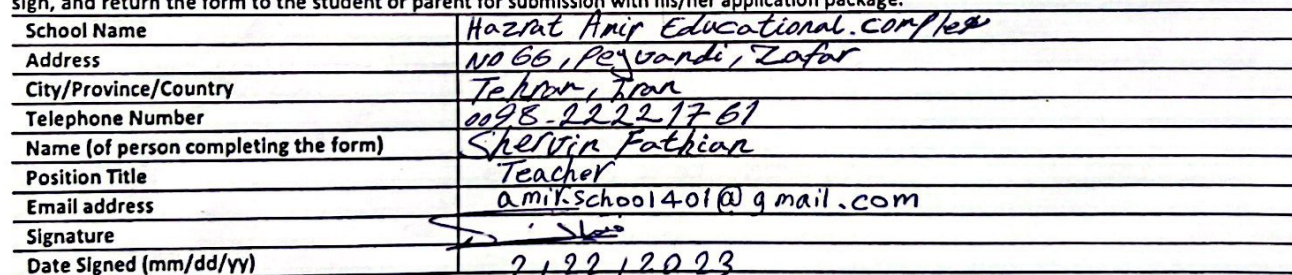 sign, and return the form to the student or parent for submission with his/her application package.
School Name Hazrat Amir Educational.complex
Address NO 66, Peyvandi, Zafar
City/Province/Country Tehran, Iran
Telephone Number 0098-22221761
Name (of person completing the form) Shervin Fathian
Position Title Teacher
Email address amir.school401@gmail.com
Signature
Date Signed (mm/dd/yy) 2/22/2023